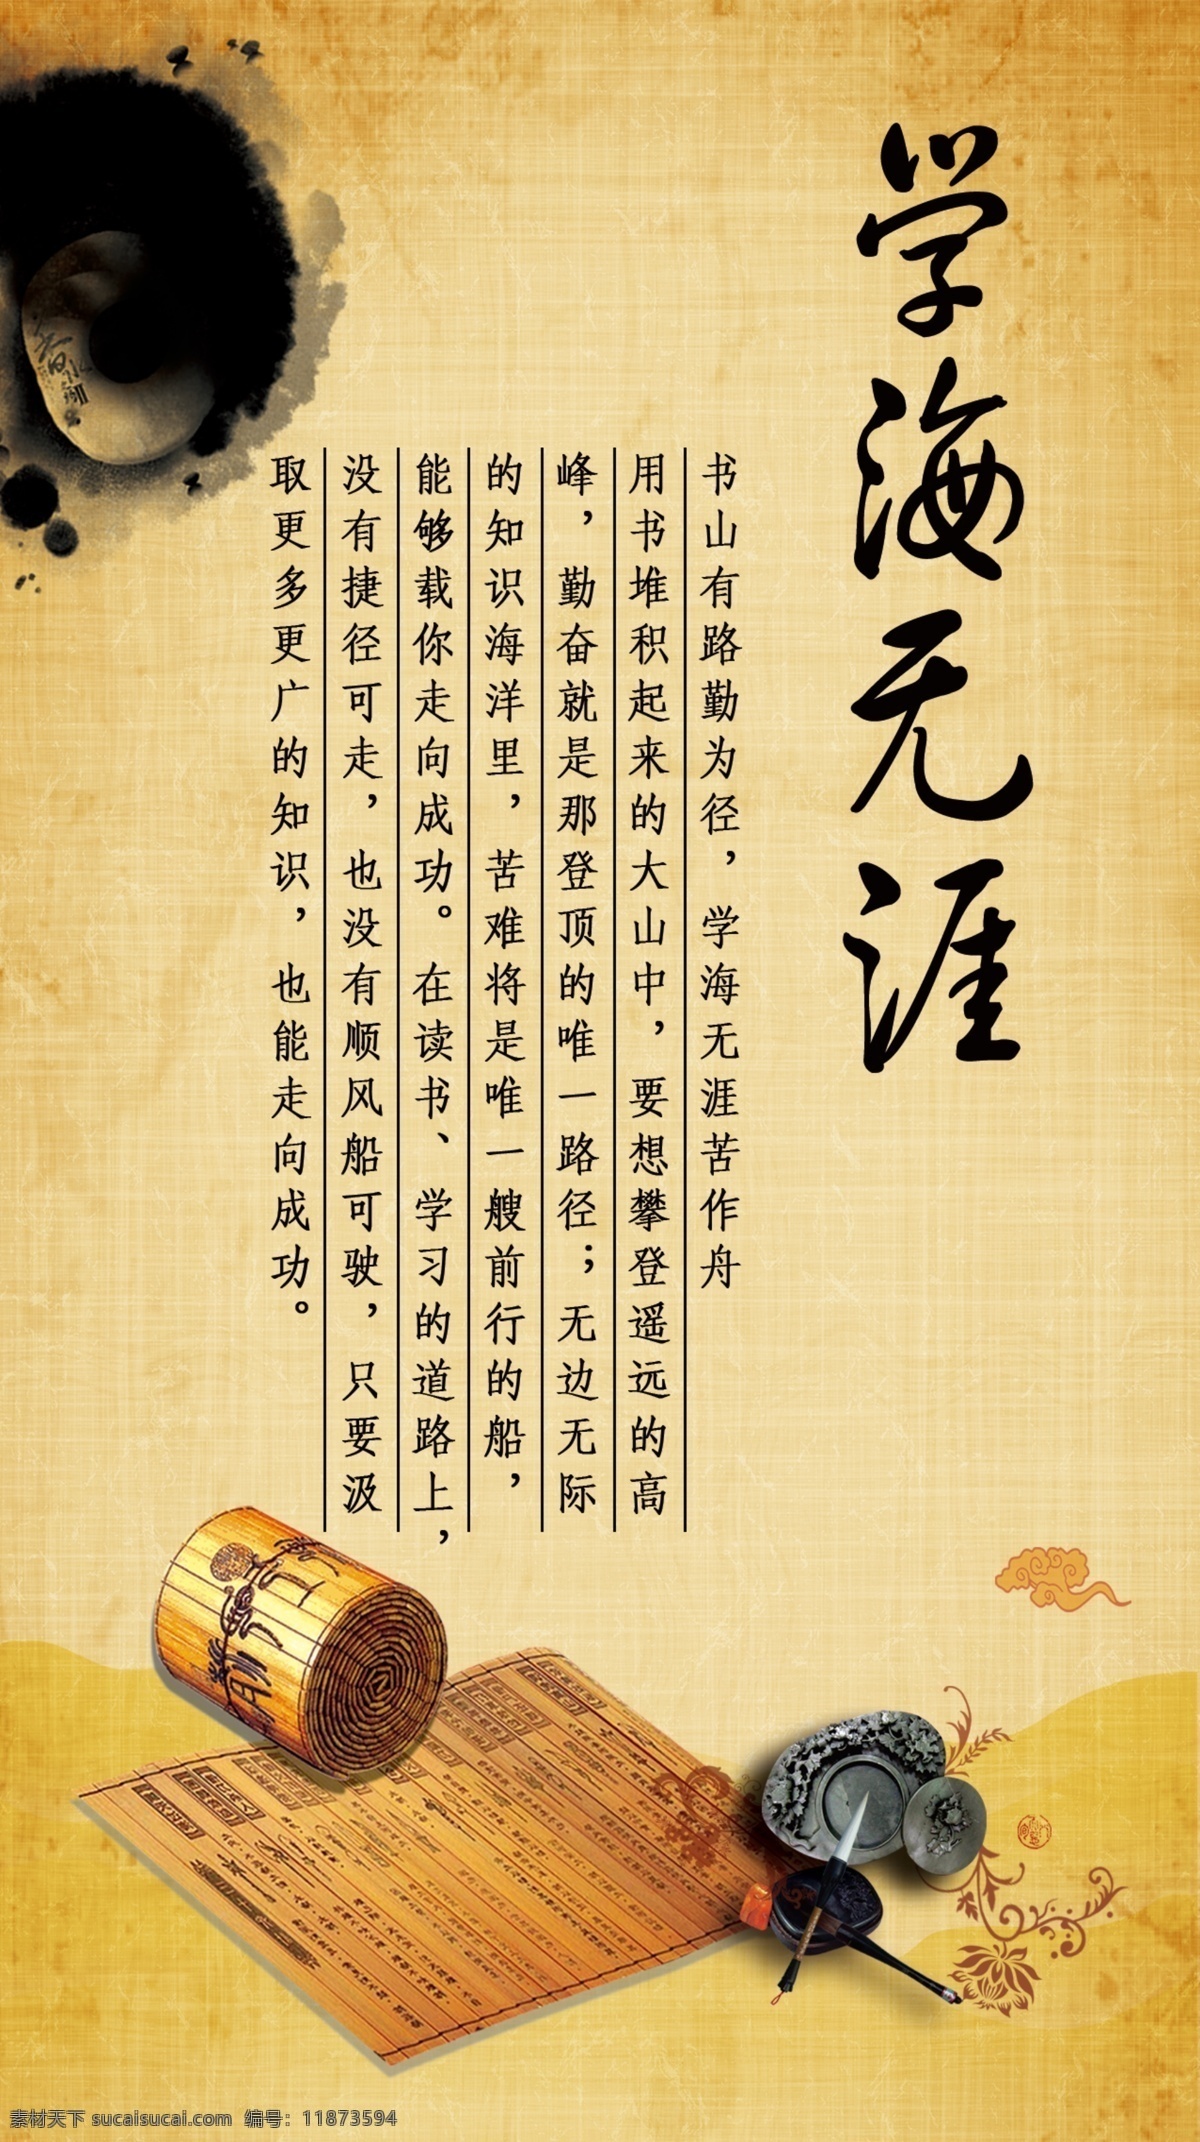 学海无涯
书山有路勤为径，学海无涯苦作舟
用书堆积起来的大山中，要想攀登遥远的高
峰，勤奋就是那登顶的唯一路径；无边无际
的知识海洋里，苦难将是唯一艘前行的船，
能够载你走向成功。在读书、学习的道路上，
没有捷径可走，也没有顺风船可驶，只要汲
取更多更广的知识，也能走向成功。
素材天下 sucaisucai.com 编号：11873594